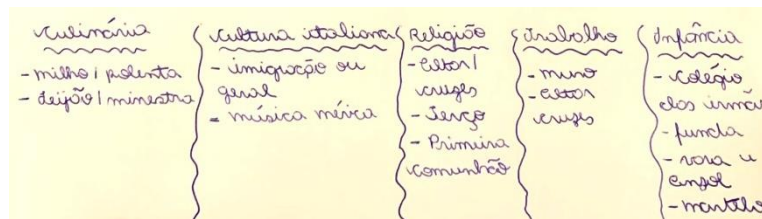 Culinária
- milho / polenta
- feijão / minestra
Cultura italiana
- imigração ou
geral
- música mérica
Religião
- Eitor /
cruzes
- Terço
- Primeira
comunhão
Trabalho
- muro
- Eitor
cruzes
Infância
- Colégio
dos irmão
- funda
- vara e
anzol
- martelo